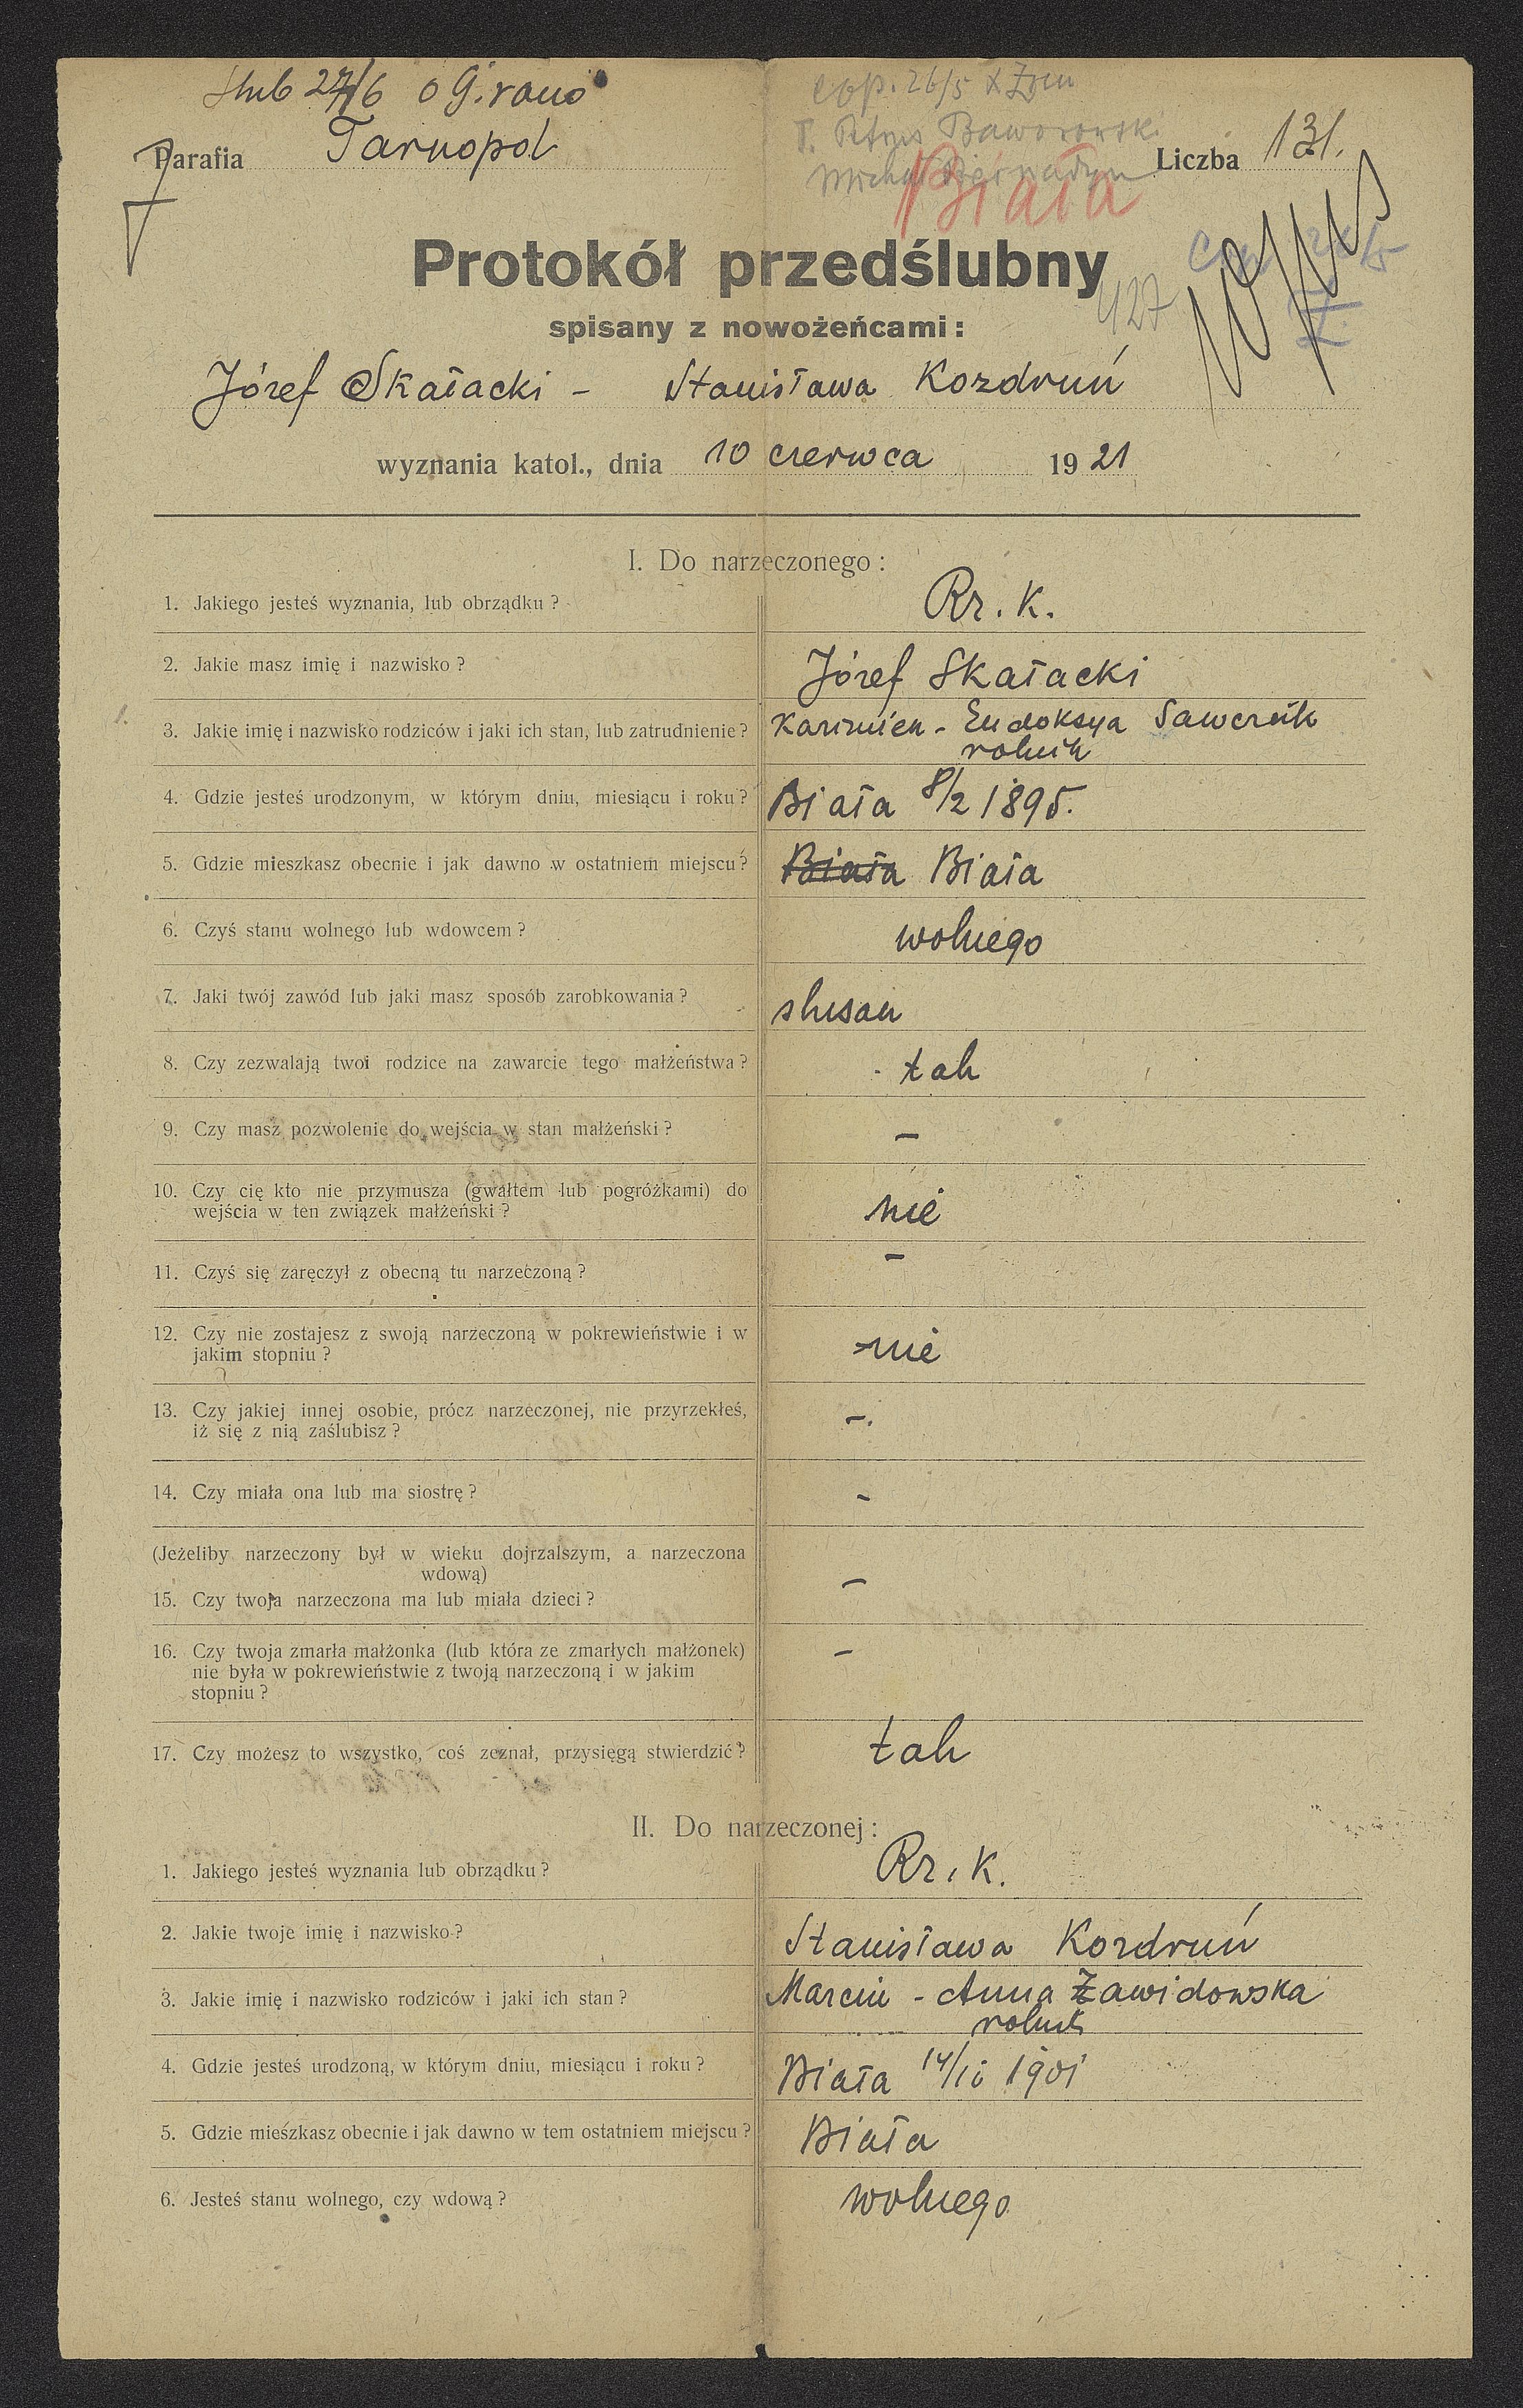 Ślub 27/6 o 9. rano
Parafia Tarnopol
Cop. 26/5
Baworowski
Michał
Biała
Liczba 131.
Protokół przedślubny
427
spisany z nowożeńcami:
Józef Skałacki - Stanisława Kozdruń
wyznania katol., dnia 10 czerwca 1921
I. Do narzeczonego:
1. Jakiego jesteś wyznania, lub obrządku? Rz. K.
2. Jakie masz imię i nazwisko? Józef Skałacki
3. Jakie imię i nazwisko rodziców i jaki ich stan, lub zatrudnienie? Kazimierz - Eudoksya Sawczuk
rolnik
4. Gdzie jesteś urodzonym, w którym dniu, miesiącu i roku? Biała 8/2 1895.
5. Gdzie mieszkasz obecnie i jak dawno w ostatniem miejscu? Biała Biała
6. Czyś stanu wolnego lub wdowcem? wolnego
7. Jaki twój zawód lub jaki masz sposób zarobkowania? ślusarz
8. Czy zezwalają twoi rodzice na zawarcie tego małżeństwa? tak
9. Czy masz pozwolenie do wejścia w stan małżeński? —
10. Czy cię kto nie przymusza (gwałtem lub pogróżkami) do
wejścia w ten związek małżeński? nie
11. Czyś się zaręczył z obecną tu narzeczoną? —
12. Czy nie zostajesz z swoją narzeczoną w pokrewieństwie i w
jakim stopniu? nie
13. Czy jakiej innej osobie, prócz narzeczonej, nie przyrzekłeś,
iż się z nią zaślubisz? —.
14. Czy miała ona lub ma siostrę? -
(Jeżeliby narzeczony był w wieku dojrzalszym, a narzeczona
wdową)
15. Czy twoja narzeczona ma lub miała dzieci? —
16. Czy twoja zmarła małżonka (lub która ze zmarłych małżonek)
nie była w pokrewieństwie z twoją narzeczoną i w jakim
stopniu? —
17. Czy możesz to wszystko, coś zeznał, przysięgą stwierdzić? tak
II. Do narzeczonej:
1. Jakiego jesteś wyznania lub obrządku? Rz. K.
2. Jakie twoje imię i nazwisko? Stanisława Kozdruń
3. Jakie imię i nazwisko rodziców i jaki ich stan? Marcin - Anna Zawidowska
rolnik
4. Gdzie jesteś urodzoną, w którym dniu, miesiącu i roku? Biała 14/10 1901
5. Gdzie mieszkasz obecnie i jak dawno w tem ostatniem miejscu? Biała
6. Jesteś stanu wolnego, czy wdową? wolnego